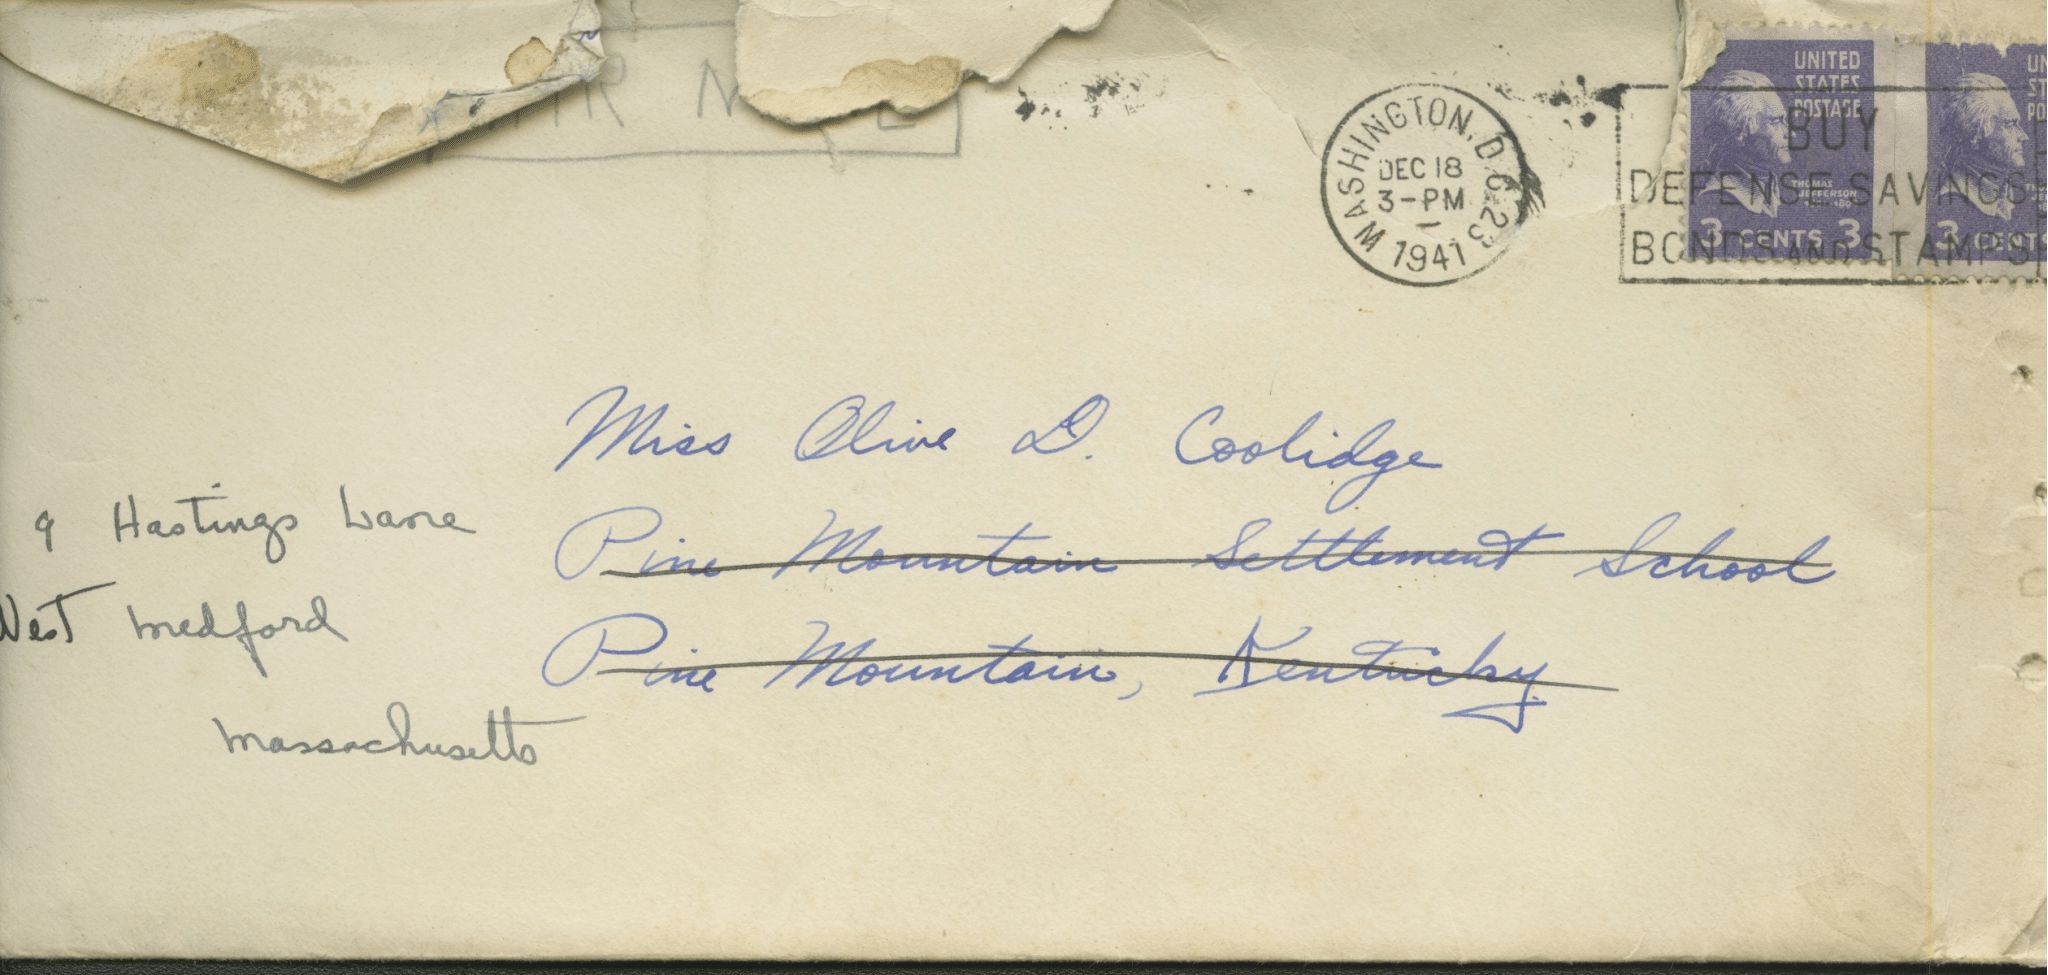 WASHINGTON, D.C. 23
DEC 18
3-PM
1941
BUY
DEFENSE SAVINGS
BONDS AND STAMPS
UNITED
STATES
POSTAGE
THOMAS
JEFFERSON
3 CENTS 3
UN
ST
PO
3 CENTS
Miss Olive D. Coolidge
Pine Mountain Settlement School
Pine Mountain, Kentucky
9 Hastings Lane
West Medford
Massachusetts